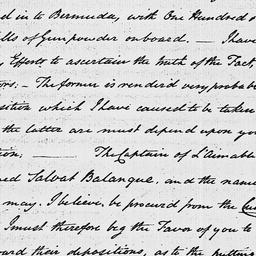 ed in to Bermuda, with One Hundred
lls of Gunpowder onboard. — I have
Efforts to ascertain the truth of the Fact,
ors. — The former is render'd very proba
sition which I have caused to be taken
the latter are must depend upon you
tion, ——— The Captain of L'aimabl
ed Salvat Balanque, and the name
may, I believe, be procured from the
I must therefore beg the Favor of you to
ward their depositions, as to the putting